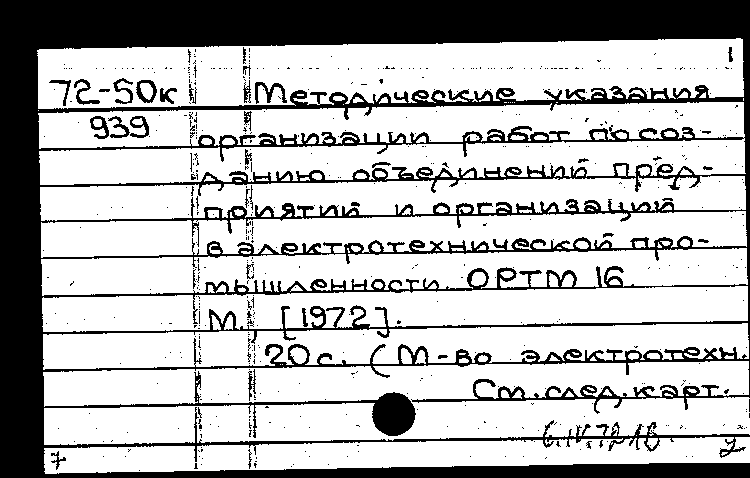 1
72-50к Методические указания
939 организации работ по соз-
данию объединений пред-
приятий и организаций
в электротехнической про-
мышленности. ОРТМ 16.
М., [1972].
20 с. (М-во электротехн.
См. след. карт.
6.IV.72
7